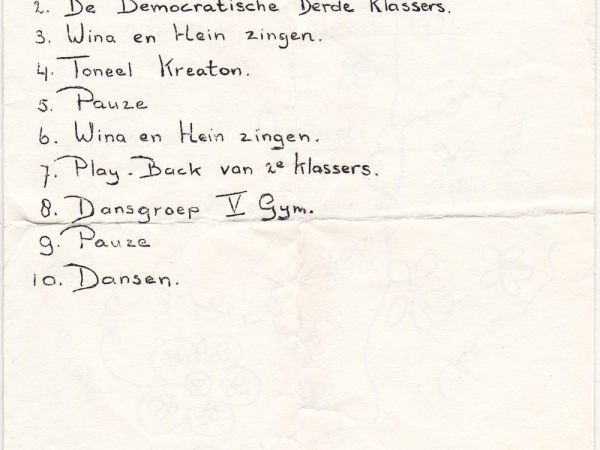 2. De Democratische Derde Klassers.
3. Wina en Hein zingen.
4. Toneel Kreaton.
5. Pauze
6. Wina en Hein zingen.
7. Play-Back van 2e klassers.
8. Dansgroep V Gym.
9. Pauze
10. Dansen.